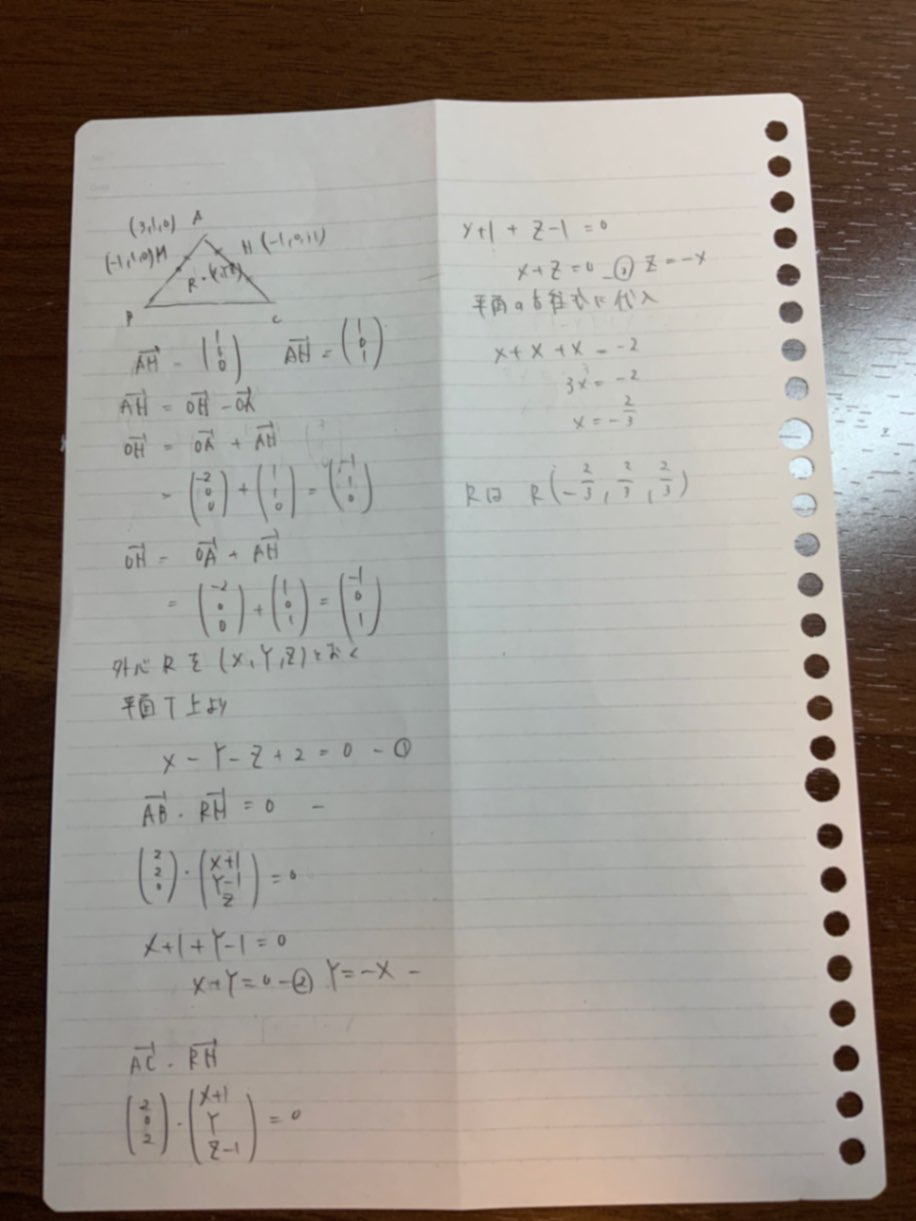 A
(3,1,0)
(-1,1,0)M
H(-1,0,1)
R・(X,Y,Z)
B
C
AH = (1 1 0) AH = (1 0 1)
AH = OH - OA
OH = OA + AH
= (-2 0 0) + (1 1 0) = (-1 1 0)
OH = OA + AH
= (-2 0 0) + (1 0 1) = (-1 0 1)
外心Rを(X,Y,Z)とおく
平面T上より
X - Y - Z + 2 = 0 - ①
AB・RH = 0 -
(2 2 0)・(X+1 Y-1 Z) = 0
X+1+Y-1=0
X+Y=0-② Y=-X -
AC・RH
(2 0 2)・(X+1 Y Z-1) = 0
X+1 + Z-1 = 0
X+Z=0-③ Z=-X
平面の方程式に代入
X+X+X=-2
3X=-2
X=-2/3
Rは R(-2/3, 2/3, 2/3)